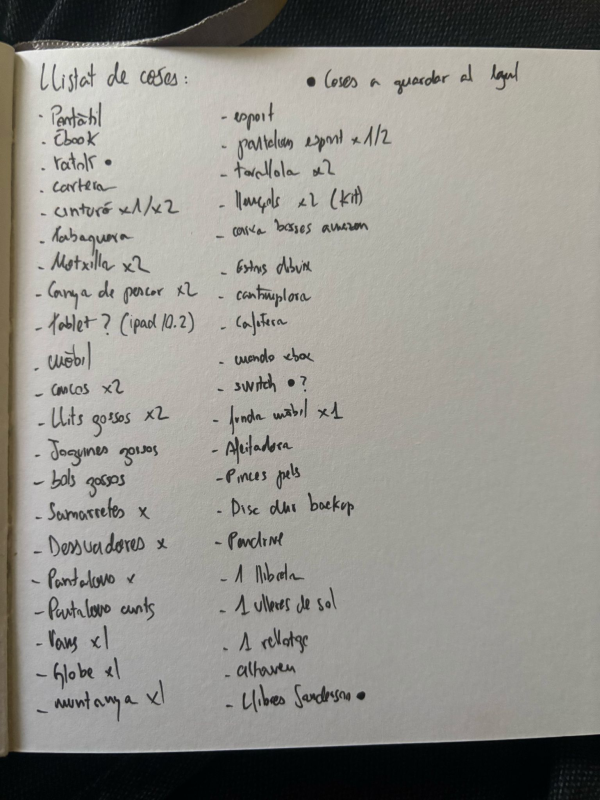 Llistat de coses:
• Coses a guardar al
- Portàtil
- Ebook
- ratolí •
- cartera
- cinturó x1/x2
- Tabaquera
- Motxilla x2
- Canya de pescar x2
- Tablet? (ipad 10.2)
- mòbil
- cascos x2
- Llits gossos x2
- Joguines gossos
- bols gossos
- Samarretes x
- Dessuadores x
- Pantalons x
- Pantalons curts
- Vans x1
- Globe x1
- muntanya x1
- esport
- pantalons esport x1/2
- tovallola x2
- llençols x2 (Kit)
- caixa bosses amazon
- Estris dibuix
- cantimplora
- Cafetera
- mando xbox
- switch •?
- funda mòbil x1
- Afeitadora
- Pinces pels
- Disc dur backup
- Pendrive
- 1 llibreta
- 1 ulleres de sol
- 1 rellotge
- altaveu
- Llibres Sanderson •